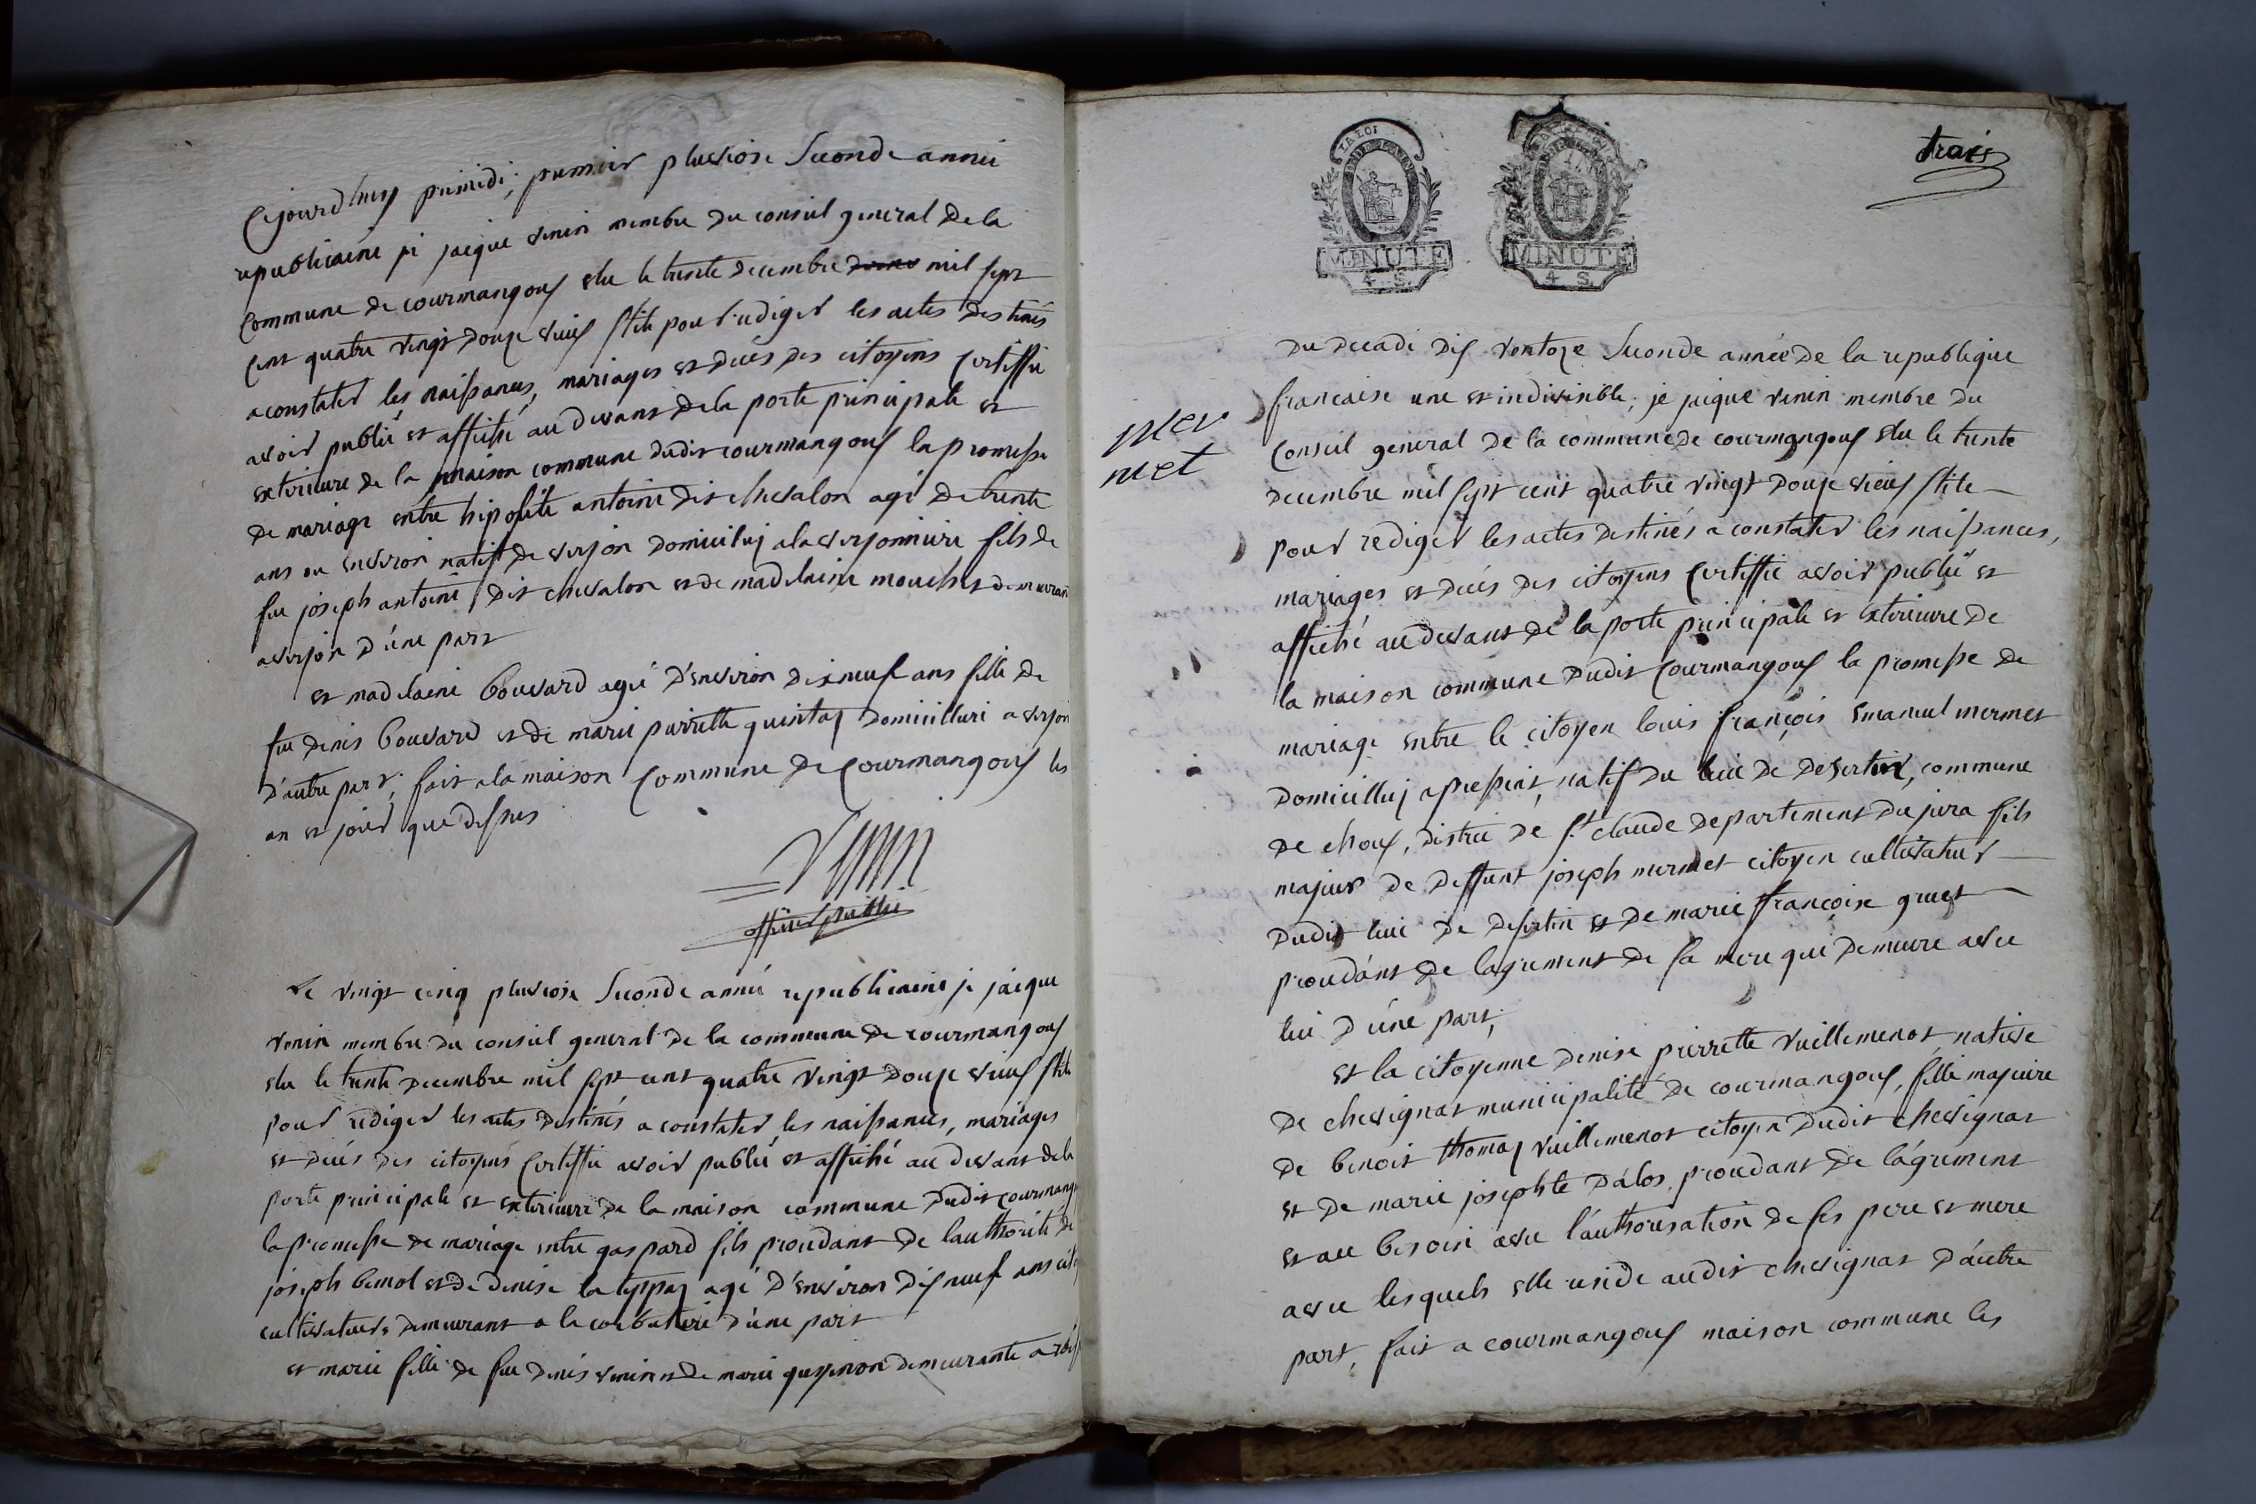 Cejourdhuy primidi, premier pluviose seconde année
republicaine je jacque venin membre du conseil general de la
commune de courmangoux elu le trente decembre mil sept
cent quatre vingt douze vieux stile pour rediger les actes destinés
a constater les naissances, mariages et décés des citoyens certiffie
avoir publié et affiché au devant de la porte principale et
exterieure de la maison commune dudit courmangoux la promesse
de mariage entre hipolite antoine dit chevalon agé de trente
ans ou environ natif de verjon domicilié a la verjonniere fils de
feu joseph antoine dit chevalon et de madelaine mouchet demeurant
a verjon d'une part
et madelaine bouvard agée d'environ dixneuf ans fille de
feu denis bouvard et de marie pierrette quintaz domicilieri a verjon
d'autre part, fait a la maison commune de courmangoux les
an et jour que dessus
Venin
officier public
Le vingt cinq pluviose seconde année republicaine je jacque
venin membre du conseil general de la commune de courmangoux
elu le trente decembre mil sept cent quatre vingt douze vieux stile
pour rediger les actes destinés a constater les naissances, mariages
et décés des citoyens certiffie avoir publié et affiché au devant de la
porte principale et exterieure de la maison commune dudit courmangoux
la promesse de mariage entre gaspard fils procedant de l'authorité de
joseph bemol et de denise agé d'environ dix neuf ans
cultivateurs demeurant a la d'une part
et marie fille de feu denis venin et de marie demeurante a
trois
LA LOI
MINUTE
4 S.
MINUTE
4 S.
mer
met
Du decadi dix ventoze seconde année de la republique
francaise une et indivisible, je jacque venin membre du
conseil general de la commune de courmangoux elu le trente
decembre mil sept cent quatre vingt douze vieux stile
pour rediger les actes destinés a constater les naissances,
mariages et décés des citoyens certiffie avoir publié et
affiché au devant de la porte principale et exterieure de
la maison commune dudit courmangoux la promesse de
mariage entre le citoyen louis françois emanuel mermet
domicilié a pressiat, natif du lieu de desertin, commune
de choux, district de st claude departement du jura fils
majeur de deffunt joseph mermet citoyen cultivateur
dudit lieu de desertin et de marie françoise gruet
procedant de lagrement de sa mere qui demeure avec
lui d'une part,
et la citoyenne denise pierrette vuillemenot native
de chevignat municipalité de courmangoux, fille majeure
de benoit thomas vuillemenot citoyen dudit chevignat
et de marie josephte dalos, procedant de lágrement
et au besoin avec l'authorisation de ses pere et mere
avec lesquels elle reside audit chevignat d'autre
part, fait a courmangoux maison commune les